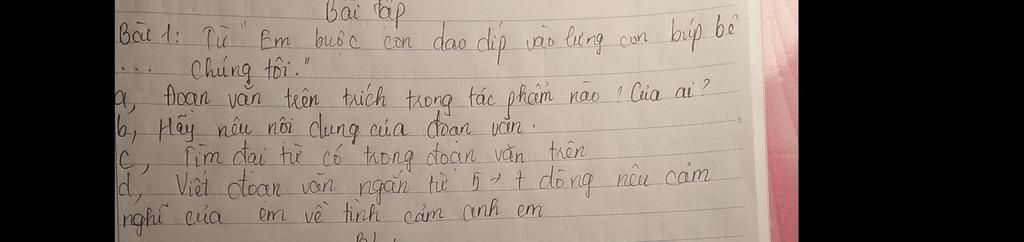 Bài tập
Bài 1: Từ "Em buộc con dao díp vào lưng con búp bê
... Chúng tôi."
a, Đoạn văn trên trích trong tác phẩm nào? Của ai?
b, Hãy nêu nội dung của đoạn văn.
c, Tìm đại từ có trong đoạn văn trên
d, Viết đoạn văn ngắn từ 5 → 7 dòng nêu cảm
nghĩ của em về tình cảm anh em